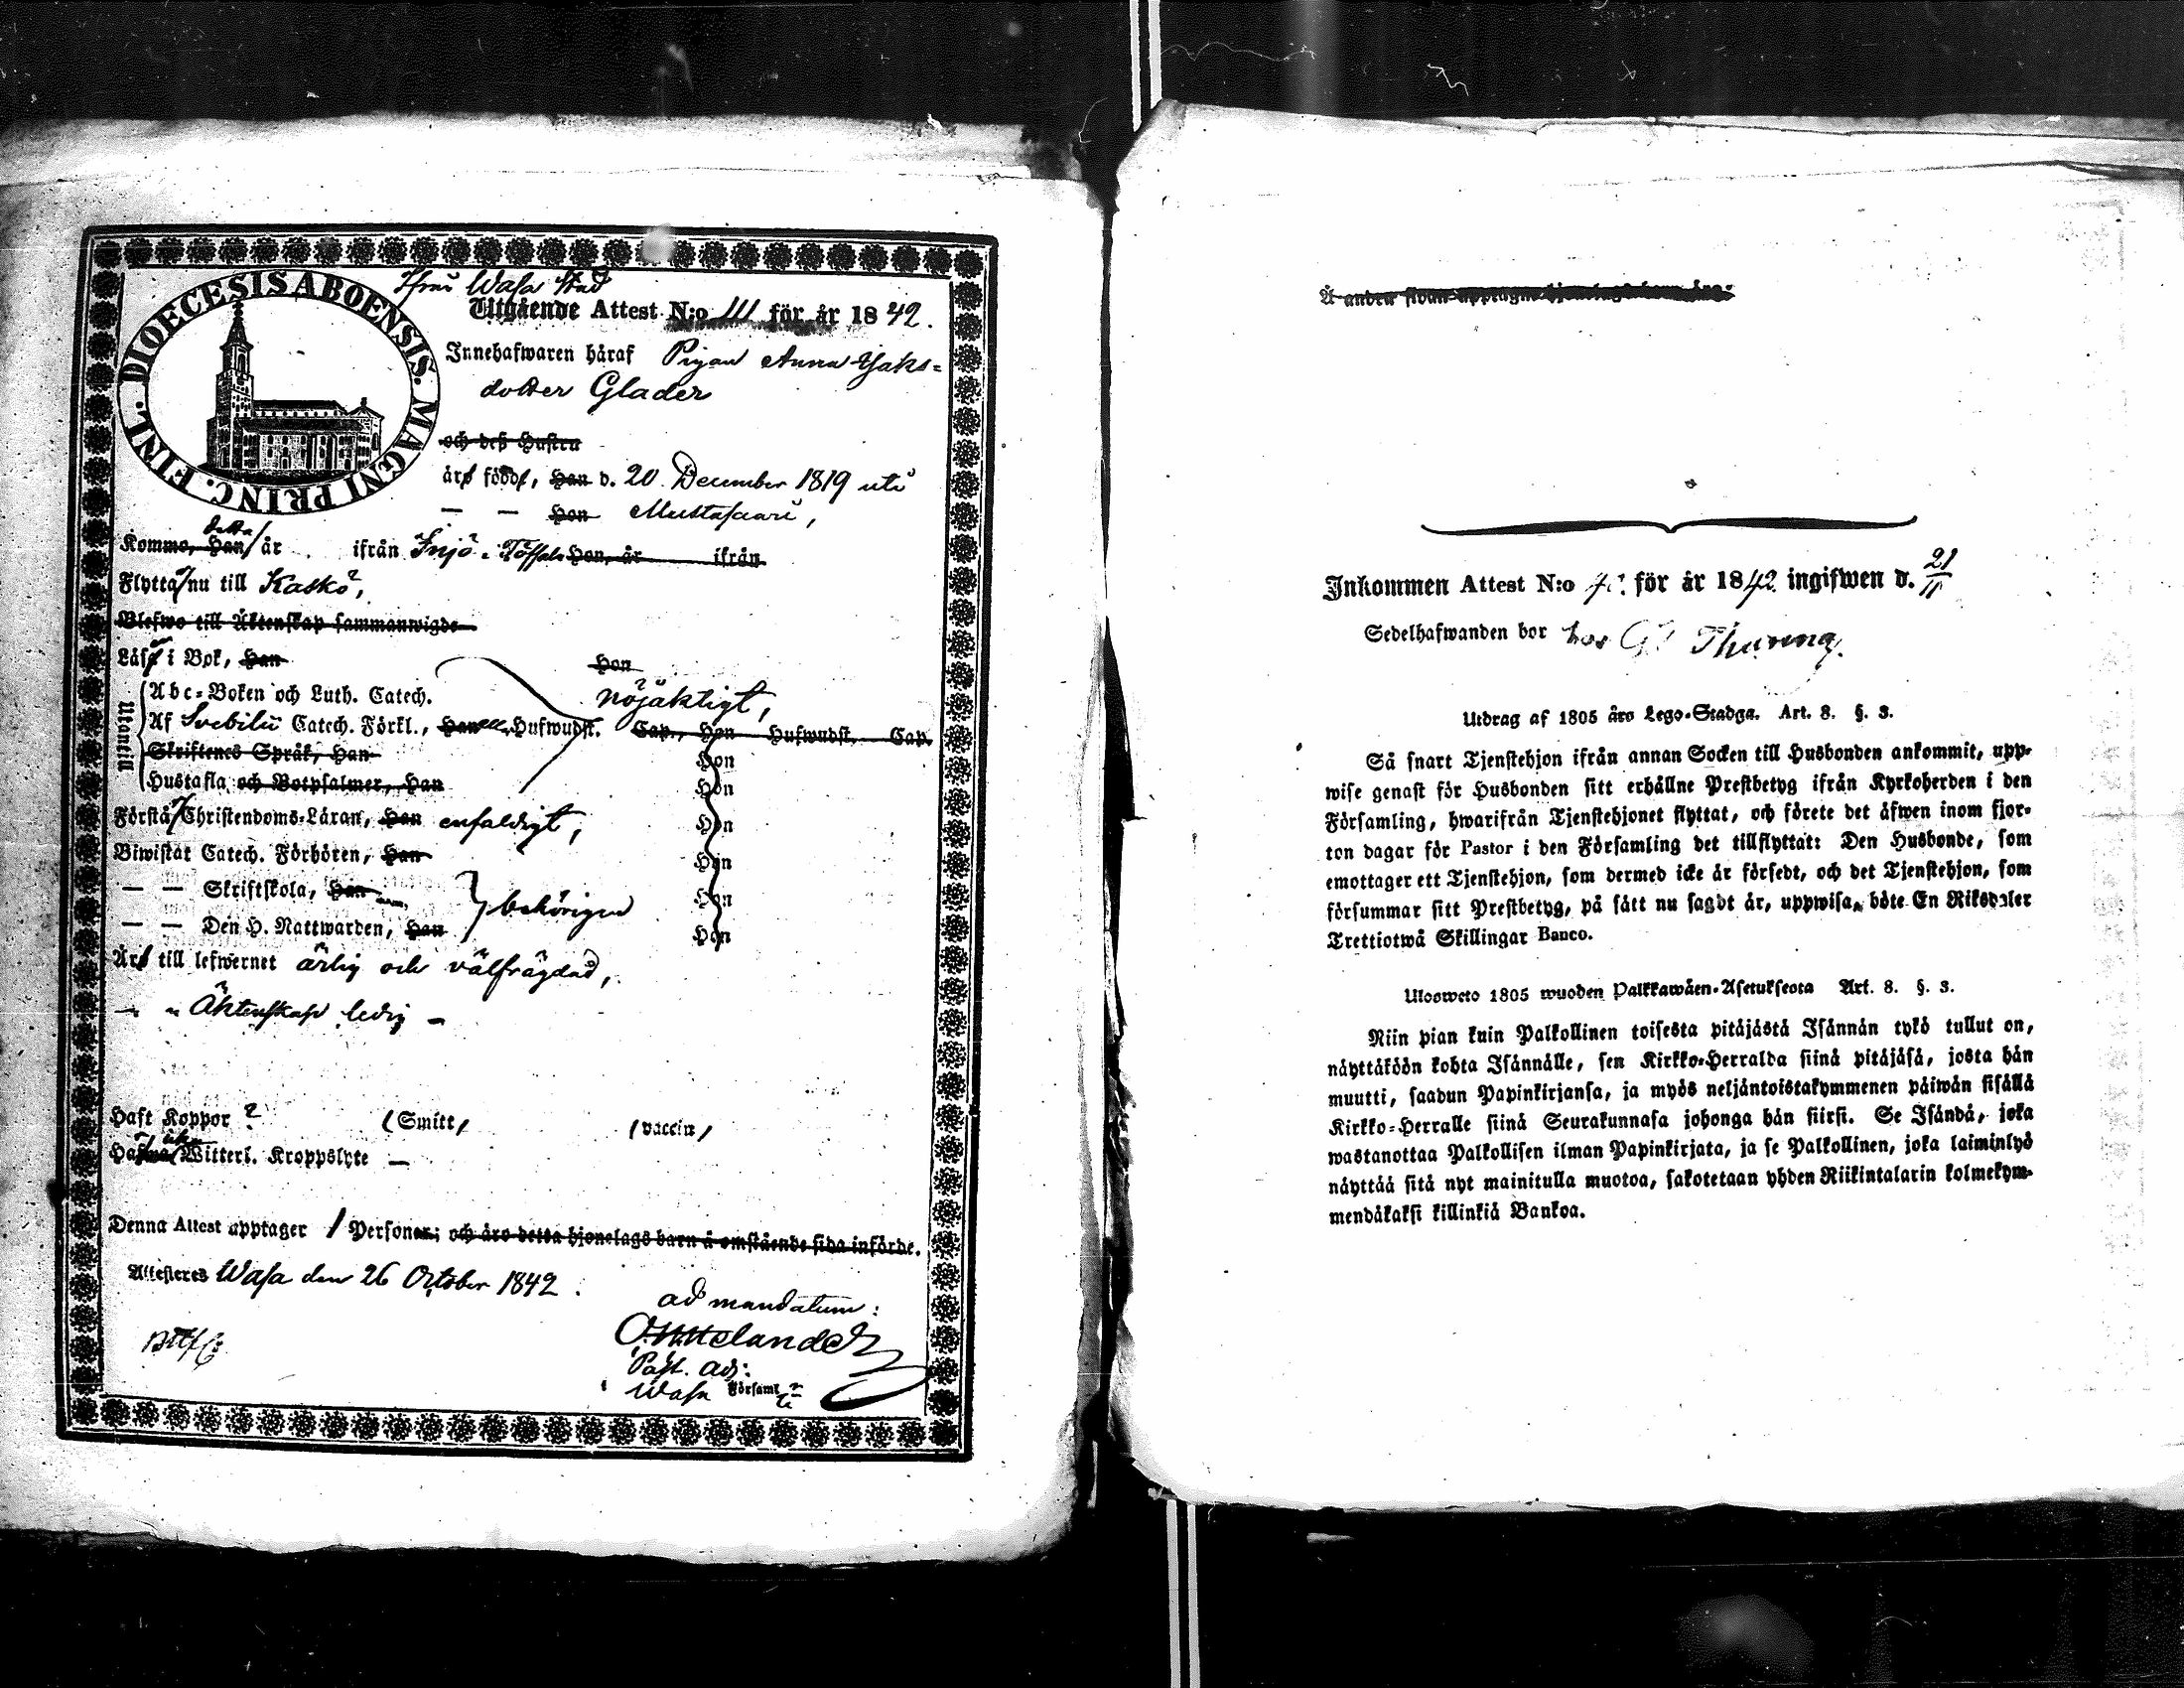 DIOECESIS ABOENSIS. MAGNI PRINC. FINL.
ifrån Wasa Stad
Utgående Attest N:o 111 för år 1842.
Innehafwaren håraf Pigan Anna Jaks=
dotter Glader
och deß Hustru
äro födde, Han d. 20 December 1819 uti
— — Hon Mustasaari,
Kommo, Han detta år ifrån Injö i Töffsala Hon, år ifrån
Flytta nu till Kaskö,
Blefwo till Äktenskap sammanwigde
Läsa i Bok, Han Hon
Utonein
Abc=Boken och Luth. Catech. nöjaktigt,
Af Svebilii Catech. Förkl., Han alla Hufwudst. Cap., Hon Hufwudst. Cap.
Skriftenes Språk, Han Hon
Hustafla och Botpsalmer, Han Hon
Förstå Christendoms=Läran, Han enfaldigt, Hon
Biwistat Catech. Förhören, Han Hon
— — Skriftskola, Han Hon
— — Den H. Nattwarden, Han behörigen Hon
Äro till lefwernet ärlig och välfrägdad,
— " Äktenskap ledig —
Haft Koppor ? (Smitt/ /vaccin/
Hafwa Witterl. Kroppslyte —
Denna Attest upptager 1 Personer; och äro detta hjonelags barn å omstående sida införde.
Attesteras Wasa den 26 October 1842.
ad mandatum:
Past. Adj:
Wasa Församl
Å andra sidan upptagne hjonelags barn äro:
Inkommen Attest N:o för år 1842 ingifwen d. 21/11
Sedelhafwanden bor hos Thuring.
Utdrag af 1805 åro Lego-Stadga. Art. 8. §. 3.
Så snart Tjenstehjon ifrån annan Socken till Husbonden ankommit, upp-
wise genast för Husbonden sitt erhållne Prestbetyg ifrån Kyrkoherden i den
Församling, hwarifrån Tjenstehjonet flyttat, och förete det äfwen inom fjor-
ton dagar för Pastor i den Församling det tillflyttat: Den Husbonde, som
emottager ett Tjenstehjon, som dermed icke är försedt, och det Tjenstehjon, som
försummar sitt Prestbetyg, på sätt nu sagdt är, uppwisa, böte En Riksdaler
Trettiotwå Skillingar Banco.
Ulosweto 1805 wuoden Palkkawäen-Asetuksesta Art. 8. §. 3.
Niin pian kuin Palkollinen toisesta pitäjästä Isännän tykö tullut on,
näyttäköön kohta Isännälle, sen Kirkko-Herralda siinä pitäjäsä, josta hän
muutti, saadun Papinkirjansa, ja myös neljäntoistakymmenen päiwän sisällä
Kirkko=Herralle siinä Seurakunnasa johonga hän siirsi. Se Isändä, joka
wastanottaa Palkollisen ilman Papinkirjata, ja se Palkollinen, joka laiminlyö
näyttää sitä nyt mainitulla muotoa, sakotetaan yhden Riikintalarin kolmekym-
mendäkaksi killinkiä Bankoa.